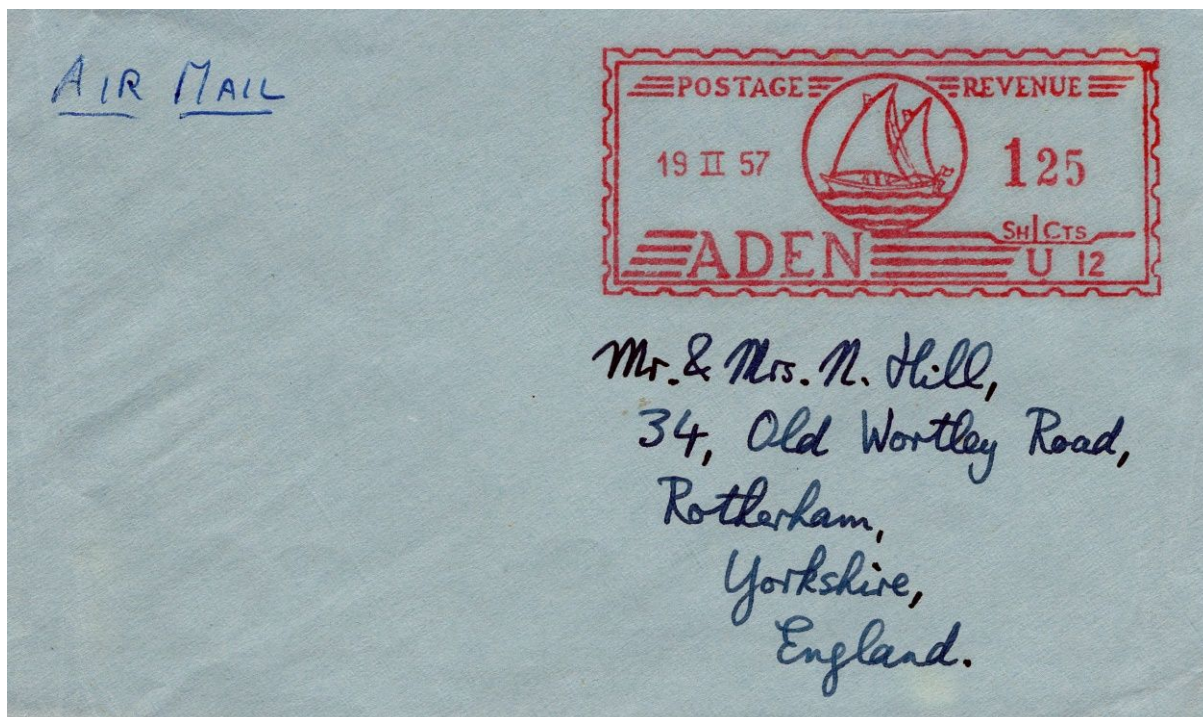 AIR MAIL
POSTAGE REVENUE
19 II 57
125
SH CTS
ADEN
U 12
Mr. & Mrs. N. Hill,
34, Old Wortley Road,
Rotherham,
Yorkshire,
England.